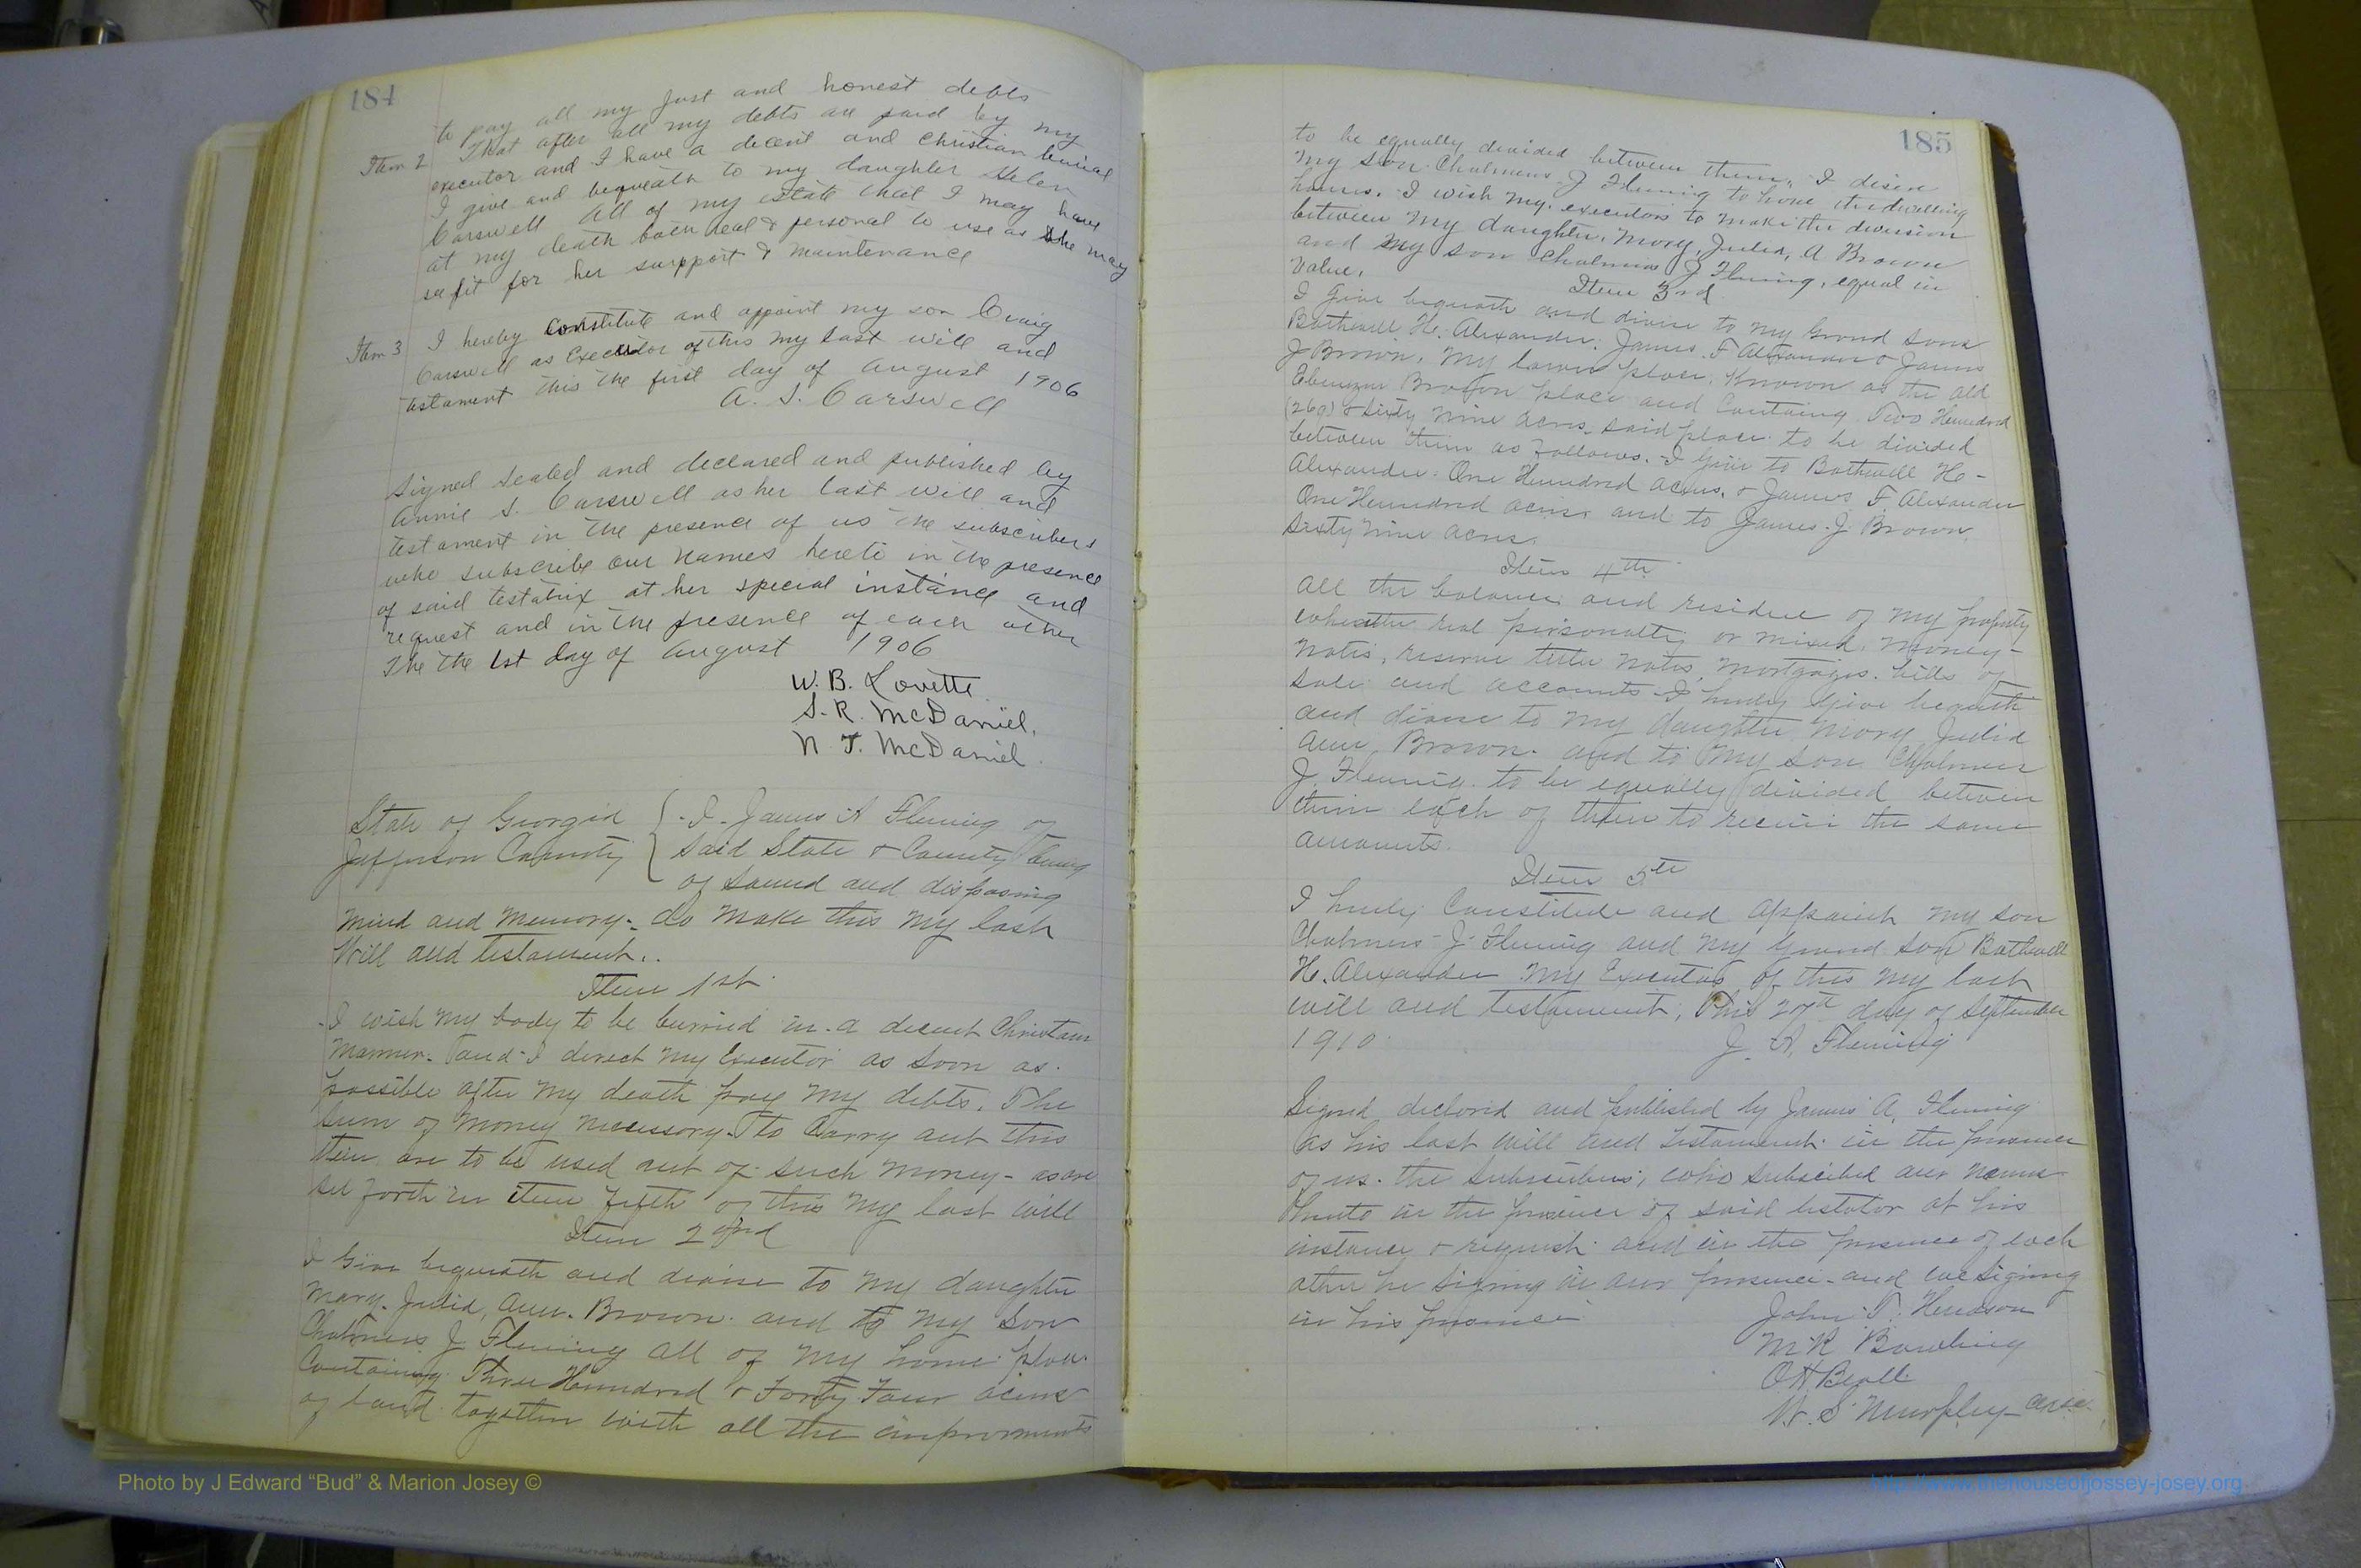 184
to pay all my just and honest debts
Item 2 That after all my debts are paid by my
executor and I have a decent and christian burial
I give and bequeath to my daughter Helen
Carswell all of my estate that I may have
at my death both real & personal to use as she may
see fit for her support & maintenance
Item 3 I hereby constitute and appoint my son Craig
Carswell as Executor of this my last will and
testament this the first day of August 1906
A. S. Carswell
Signed sealed and declared and published by
Annie S. Carswell as her last will and
testament in the presence of us the subscribers
who subscribe our names hereto in the presence
of said testatrix at her special instance and
request and in the presence of each other
The the 1st day of August 1906
W. B. Lovette
S. R. McDaniel.
N. T. McDaniel.
State of Georgia { - I - James A Fleming of
Jefferson County { said State & County being
of sound and disposing
mind and memory - do make this my last
Will and testament..
Item 1st.
I wish my body to be burried in a decent Christian
manner - and I direct my Executor as soon as
possible after my death pay my debts. The
sum of money necessary to carry out this
Item are to be used out of such money - as are
set forth in item fifth of this my last will
Item 2nd
I Give bequeath and devise to my daughter
Mary. Julia, Ann. Brown. and to my son
Chalmers J Fleming all of my home place
Containing Three Hundred & Forty Four acres
of land together with all the improvments
185
to be equally divided between them, I desire
my son Chalmers J Fleming to have the dwelling
house. I wish my executors to make the division
between my daughter, Mary, Julia, A Brown
and my son Chalmers J Fleming, equal in
value.
Item 3rd
I Give bequeath and devise to my Grand sons
Bothwell H. Alexander. James. F Alexander & James
J Brown, my lower place, known as the old
Ebenezer Brown place and Containg Two Hundred
(269) & sixty nine acres, said place to be divided
between them as follows. I Give to Bothwell H -
Alexander. One Hundred acres, & James F Alexander
One Hundred acres and to James. J. Brown.
sixty nine acres.
Item 4th
All the balance and residue of my property
whether real personalty or mixed, money -
notes, reserve title notes, mortgages, bills of
sale and accounts - I hereby Give bequeath
and devise to my daughter Mary Julia
Ann, Brown. and to my son Chalmers
J. Fleming. to be equally divided between
them each of them to receive the same
amounts.
Item 5th
I hereby Constitute and appoint my son
Chalmers J. Fleming and my Grand son Bothwell
H. Alexander my Executors of this my last
will and testament, This 27th day of September
1910. J. A. Fleming
Signed declared and published by James A, Fleming
as his last will and testament. in the presence
of us. the subscribers, who subscribed our names
hereto in the presence of said testator at his
instance & request and in the presence of each
other he signing in our presence - and we signing
in his presence
John T. Hudson
M R Bowling
O H Beall
W. S. Murphey
Photo by J Edward “Bud” & Marion Josey ©
http://www.thehouseofjossey-josey.org